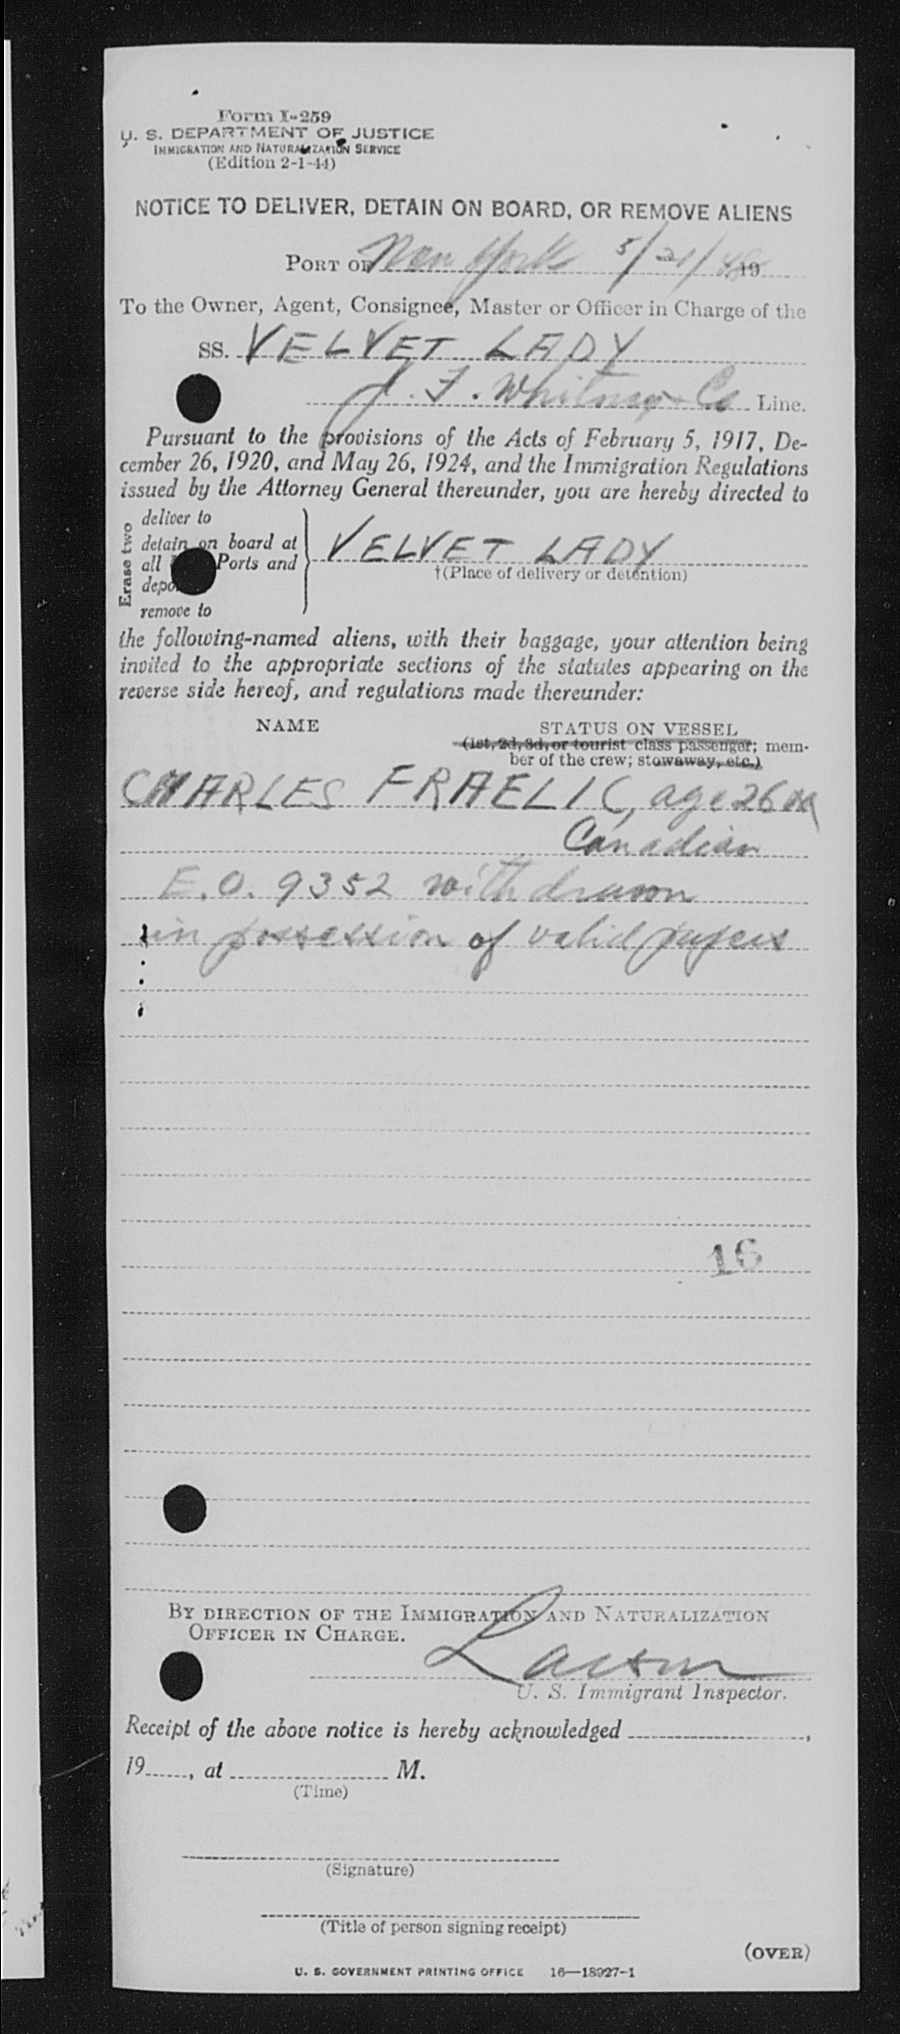 Form I-259
U. S. DEPARTMENT OF JUSTICE
IMMIGRATION AND NATURALIZATION SERVICE
(Edition 2-1-44)
NOTICE TO DELIVER, DETAIN ON BOARD, OR REMOVE ALIENS
PORT OF New York 5/21/48 19
To the Owner, Agent, Consignee, Master or Officer in Charge of the
SS. VELVET LADY
J. F. Whitney & Co Line.
Pursuant to the provisions of the Acts of February 5, 1917, De-
cember 26, 1920, and May 26, 1924, and the Immigration Regulations
issued by the Attorney General thereunder, you are hereby directed to
Erase two
deliver to
detain on board at
all Ports and
remove to
VELVET LADY
†(Place of delivery or detention)
the following-named aliens, with their baggage, your attention being
invited to the appropriate sections of the statutes appearing on the
reverse side hereof, and regulations made thereunder:
NAME STATUS ON VESSEL
(1st, 2d, 3d, or tourist class passenger; mem-
ber of the crew; stowaway, etc.)
CHARLES FRAELIC, age 26
Canadian
E.O. 9352 withdrawn
in possession of valid papers
16
BY DIRECTION OF THE IMMIGRATION AND NATURALIZATION
OFFICER IN CHARGE.
U. S. Immigrant Inspector.
Receipt of the above notice is hereby acknowledged ,
19 , at M.
(Time)
(Signature)
(Title of person signing receipt)
(OVER)
U. S. GOVERNMENT PRINTING OFFICE 16—18927-1